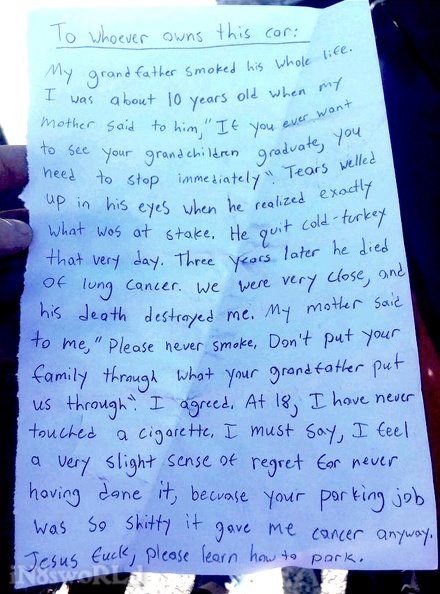 To whoever owns this car:
My grandfather smoked his whole life.
I was about 10 years old when my
mother said to him, "If you ever want
to see your grandchildren graduate, you
need to stop immediately". Tears welled
up in his eyes when he realized exactly
what was at stake. He quit cold-turkey
that very day. Three years later he died
of lung cancer. We were very close, and
his death destroyed me. My mother said
to me, "Please never smoke. Don't put your
family through what your grandfather put
us through". I agreed. At 18, I have never
touched a cigarette. I must say, I feel
a very slight sense of regret for never
having done it, because your parking job
was so shitty it gave me cancer anyway.
Jesus fuck, please learn how to park.
iN8sWoRLd